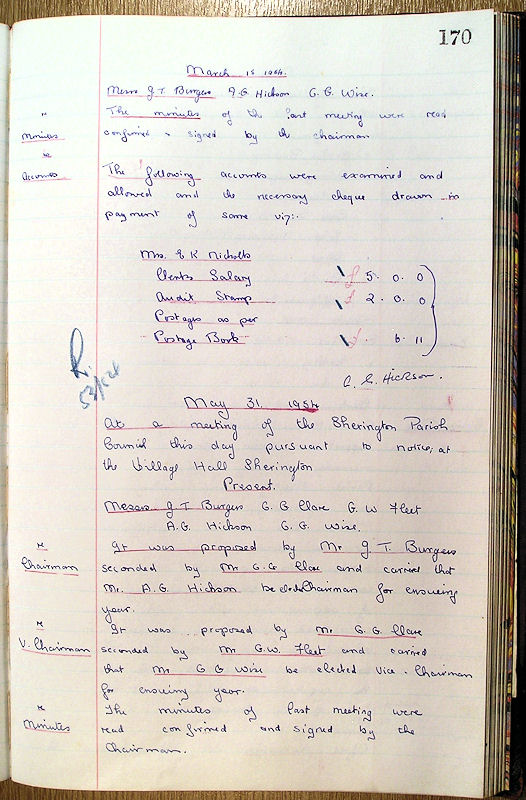 170
March 15 1954.
Messrs J T Burgess A.G. Hickson G. G. Wise.
" The minutes of the last meeting were read
Minutes confirmed & signed by the chairman
"
Accounts The following accounts were examined and
allowed and the necessary cheque drawn in
payment of same viz:-
Mrs. E K Nicholls
Clerks Salary £ 5. 0. 0
Audit Stamp £ 2. 0. 0
Postages as per
Postage Book 6. 11
Hickson.
May 31. 1954
At a meeting of the Sherington Parish
Council this day pursuant to notice, at
the Village Hall Sherington
Present.
Messrs J T Burgess G. G Clare G. W Fleet
A.G. Hickson G. G. Wise.
" It was proposed by Mr J. T. Burgess
Chairman seconded by Mr G. G Clare and carried that
Mr. A.G. Hickson be elected Chairman for ensuing
year.
" It was proposed by Mr. G. G. Clare
V. Chairman seconded by Mr G.W. Fleet and carried
that Mr. G G Wise be elected Vice-Chairman
for ensuing year.
" The minutes of last meeting were
Minutes read confirmed and signed by the
Chairman.